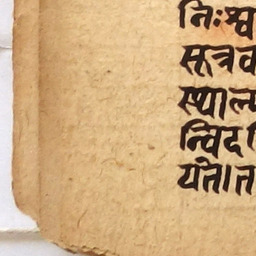 निःश्व
सूत्रव
स्थाल्प
न्विद
यंते।त